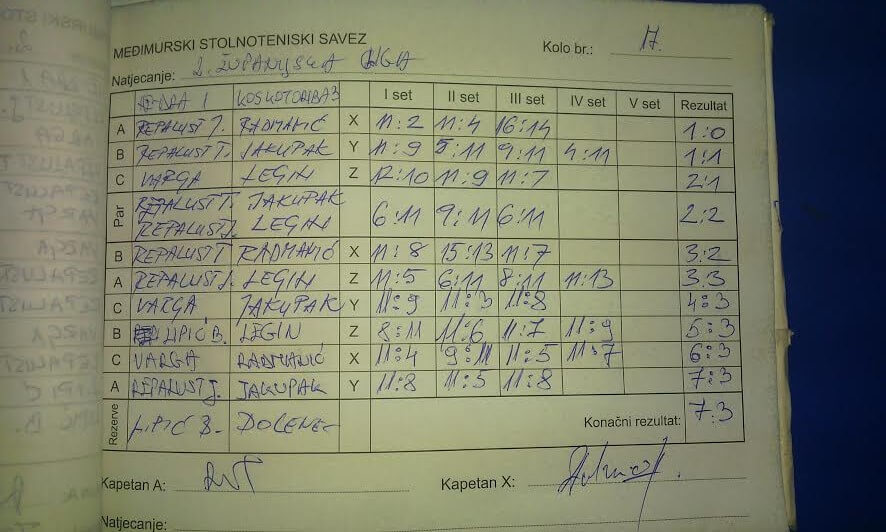 MEĐIMURSKI STOLNOTENISKI SAVEZ
Kolo br.: 17.
Natjecanje: 2. ŽUPANIJSKA LIGA
I set II set III set IV set V set Rezultat
1 KOTORIBA 3
A REPALUST J. RADMANIĆ X 11:2 11:4 16:14 1:0
B REPALUST T. JAKUPAK Y 11:9 5:11 9:11 4:11 1:1
C VARGA LEGIN Z 12:10 11:9 11:7 2:1
Par REPALUST T. JAKUPAK
REPALUST J. LEGIN 6:11 9:11 6:11 2:2
B REPALUST T RADMANIĆ X 11:8 15:13 11:7 3:2
A REPALUST J. LEGIN Z 11:5 6:11 8:11 11:13 3:3
C VARGA JAKUPAK Y 11:9 11:3 11:8 4:3
B LIPIĆ B. LEGIN Z 8:11 11:6 11:7 11:9 5:3
C VARGA RADMANIĆ X 11:4 9:11 11:5 11:7 6:3
A REPALUST J. JAKUPAK Y 11:8 11:5 11:8 7:3
Rezerve LIPIĆ B. DOLENEC Konačni rezultat: 7:3
Kapetan A: Kapetan X:
Natjecanje: